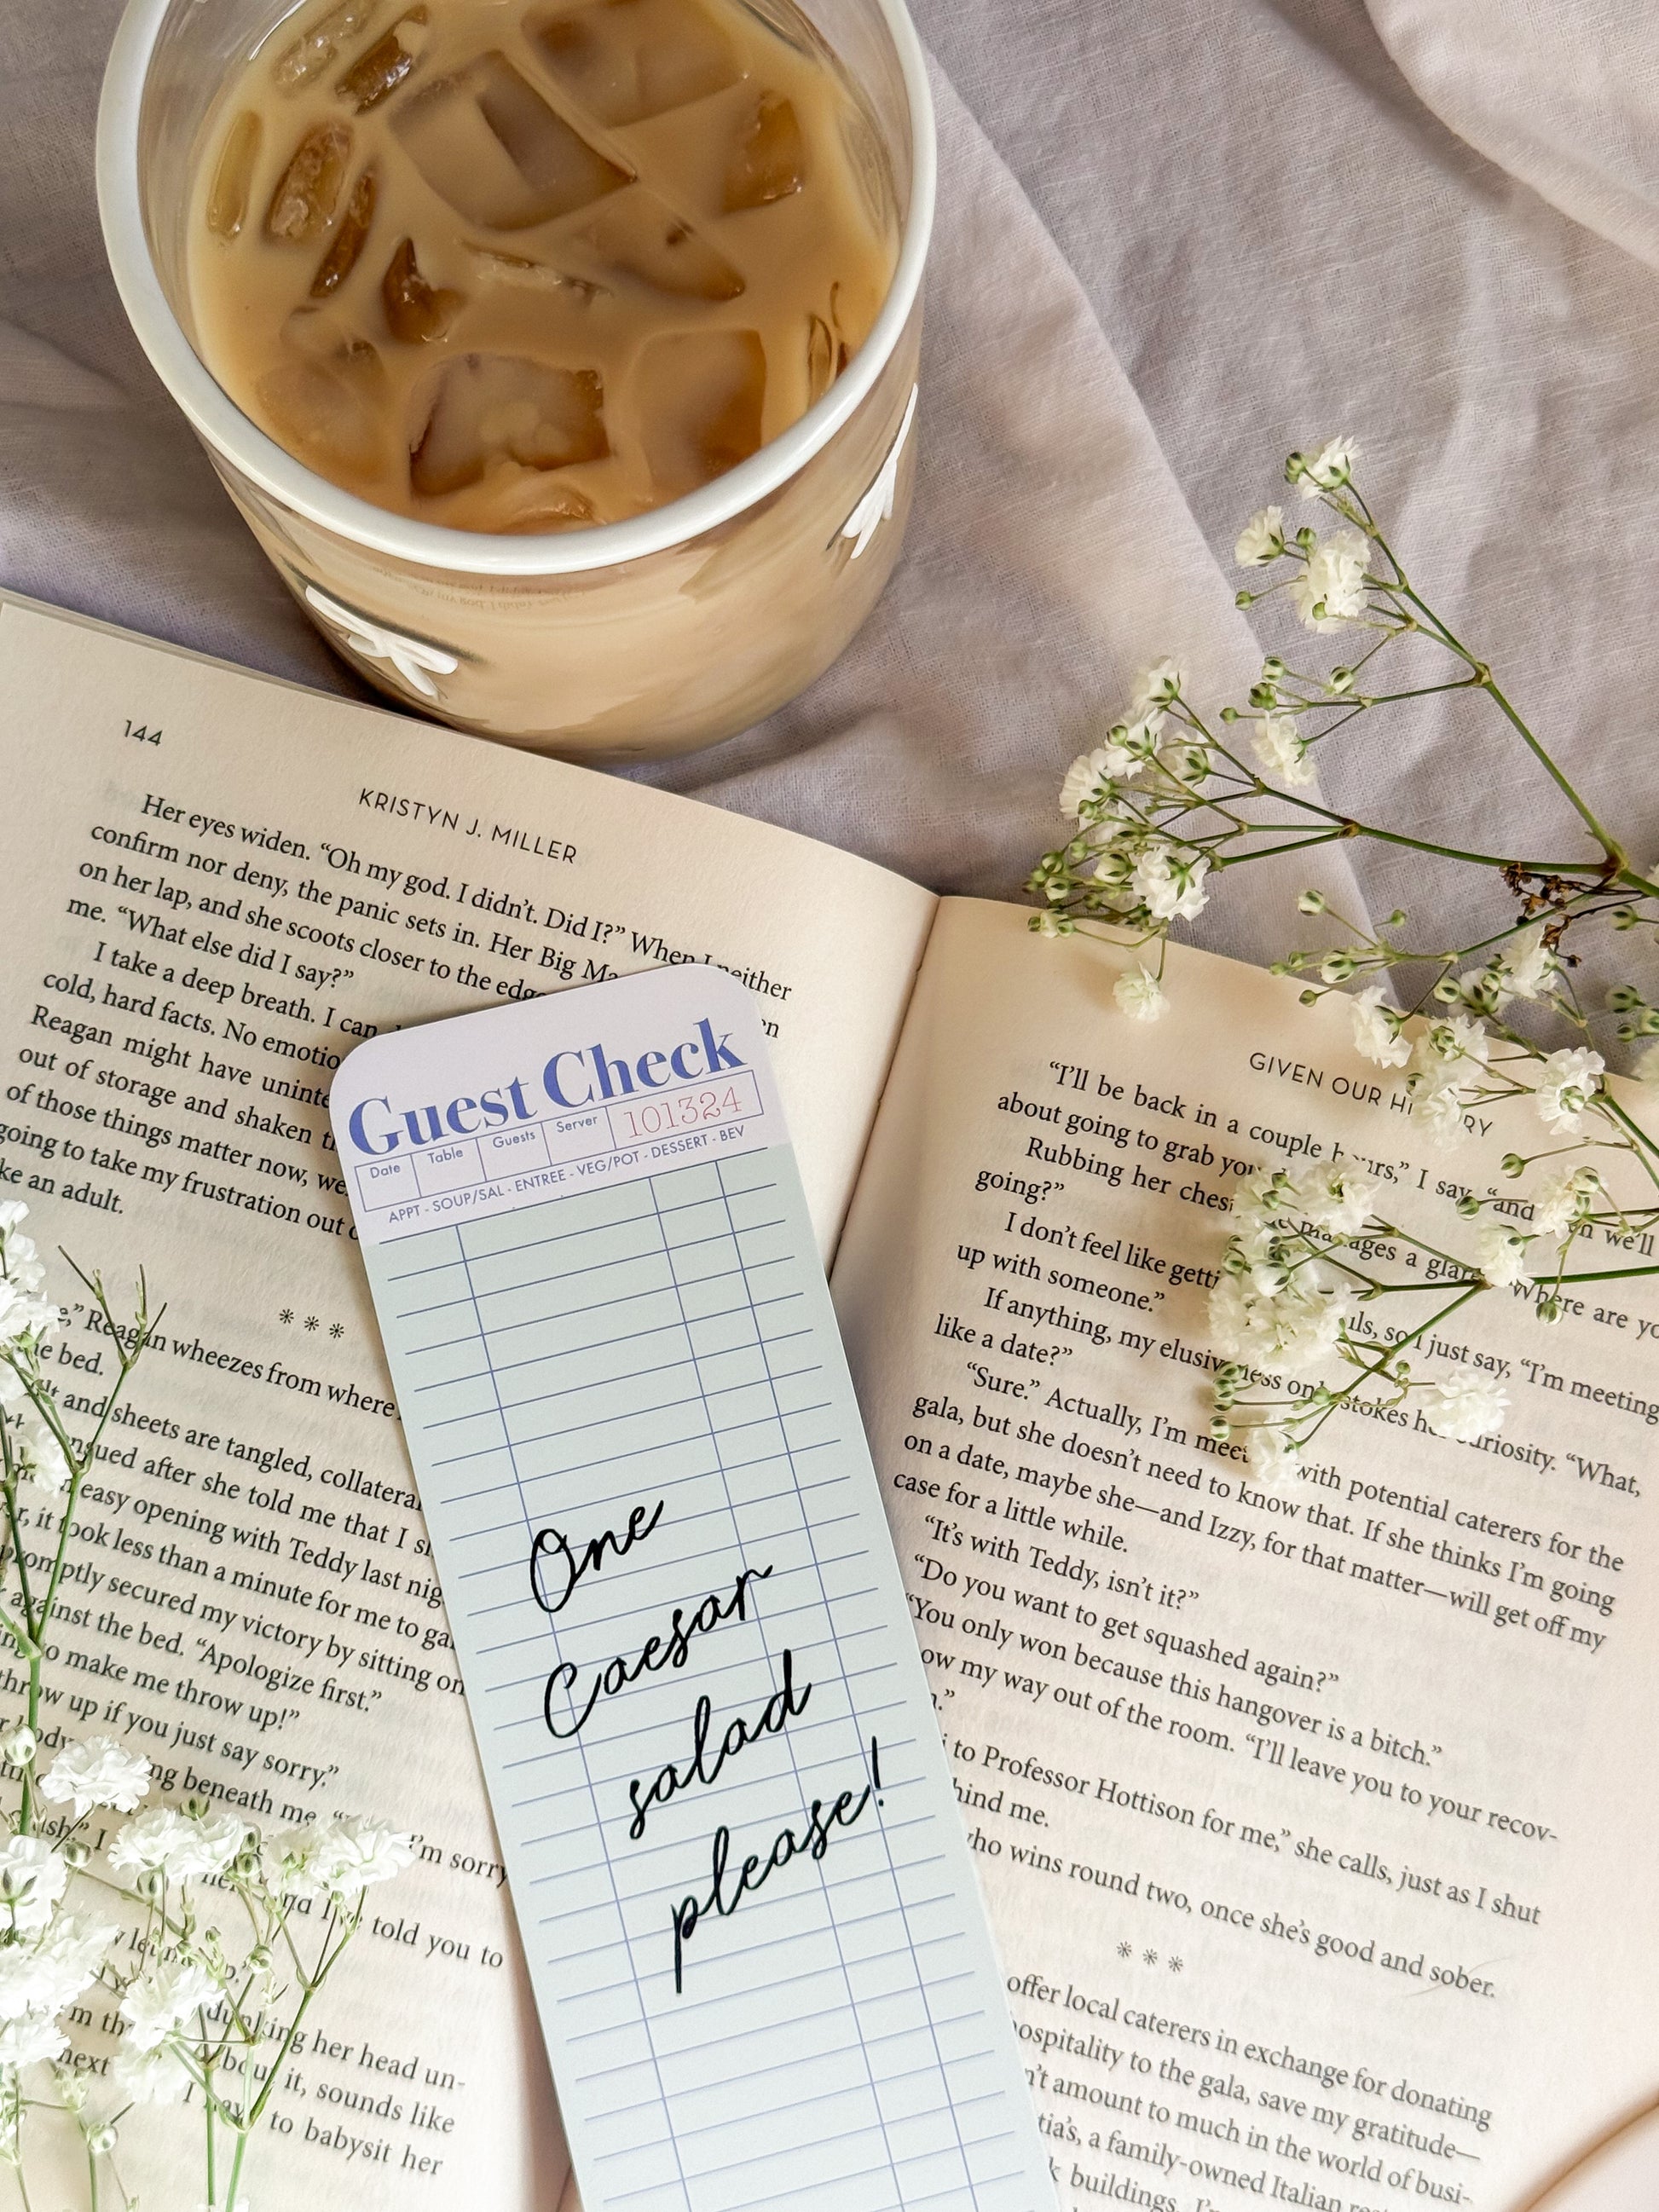 144
KRISTYN J. MILLER
Her eyes widen. “Oh my god. I didn’t. Did I?” When I neither
confirm nor deny, the panic sets in. Her Big Ma
on her lap, and she scoots closer to the edge
me. “What else did I say?”
I take a deep breath. I can
cold, hard facts. No emotio
Reagan might have uninte
out of storage and shaken th
of those things matter now, we
going to take my frustration out o
ke an adult.
***
Reagan wheezes from where
he bed.
and sheets are tangled, collateral
ngued after she told me that I s
easy opening with Teddy last nig
it took less than a minute for me to ga
promptly secured my victory by sitting on
against the bed. “Apologize first.”
to make me throw up!”
throw up if you just say sorry.”
ng beneath me.
I’m sorry
I
told you to
dunking her head un-
about it, sounds like
next
to babysit her
Guest Check
Date Table Guests Server 101324
APPT - SOUP/SAL - ENTREE - VEG/POT - DESSERT - BEV
One
Caesar
salad
please!
GIVEN OUR HI RY
“I’ll be back in a couple hours,” I say, “and
n we’ll
about going to grab you
Rubbing her chest
manages a glare. “Where are yo
going?”
I don’t feel like getti
ils, so I just say, “I’m meeting
up with someone.”
If anything, my elusiveness only stokes her curiosity. “What,
like a date?”
“Sure.” Actually, I’m meet with potential caterers for the
gala, but she doesn’t need to know that. If she thinks I’m going
on a date, maybe she—and Izzy, for that matter—will get off my
case for a little while.
“It’s with Teddy, isn’t it?”
“Do you want to get squashed again?”
“You only won because this hangover is a bitch.”
ow my way out of the room. “I’ll leave you to your recov-
.”
i to Professor Hottison for me,” she calls, just as I shut
hind me.
who wins round two, once she’s good and sober.
***
offer local caterers in exchange for donating
ospitality to the gala, save my gratitude—
n’t amount to much in the world of busi-
tia’s, a family-owned Italian
k buildings. I’